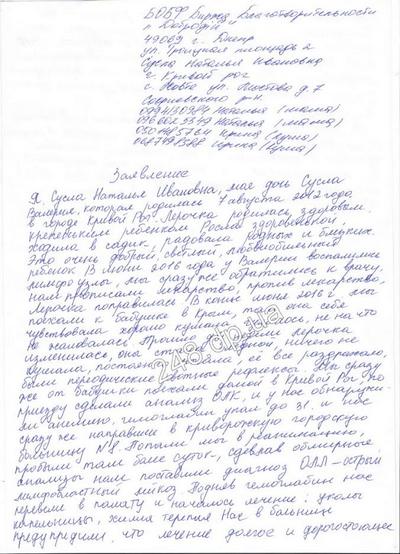 БОБФ Биржа Благотворительности
"Добродій"
49069 г. Днепр
ул. Троицкая площадь 2
Сусла Наталья Ивановна
г. Кривой рог
ул. д. 7
р-н
Наталья (мама)
Наталья (мама)
Ирина (кума)
Ирина (кума)
Заявление
Я, Сусла Наталья Ивановна, мае дочь Сусла
Валерия, которая родилась 7 августа 2012 года
в городе Кривой Рог. Лерочка родилась здоровым,
крепеньким ребенком. Росла здоровенькой,
ходила в садик, радовала родных и близких.
Это очень добрый, светлый, любвеобильный
ребенок. В июни 2016 года у Валерии воспалились
лимфоузлы, мы сразу же обратились к врачу,
нам прописали лекарство, пропив лекарство,
Лерочка поправилась. В конце июня 2016 г. мы
поехали к бабушке в Крым, там она себя
чувствовала хорошо купалась, не на что
не жаловалась. Прошло Лерочка
изменилась, она стала ничего не
кушала, постоянно её все раздражало,
были периодические рвотные рефлексы. Мы сразу
же от бабушки поехали домой в Кривой Рог. По
приезду сделали анализ ОАК, и у нас обнаружи-
ли анемию, гемоглабин упал до 31. и нас
сразу же направили в криворожскую городскую
больницу №8. Попали мы в реанимацию,
пробыли там баме суток, сделав обширные
анализы нам поставили диагноз ОЛЛ - острый
лимфобластный лейкоз. Подняв гемоглабин нас
перевели в палату и началось лечение: уколы
капельницы, химия терапия. Нас в больнице
предупредили, что лечение долгое и дорогостоящее
248.dp.ua